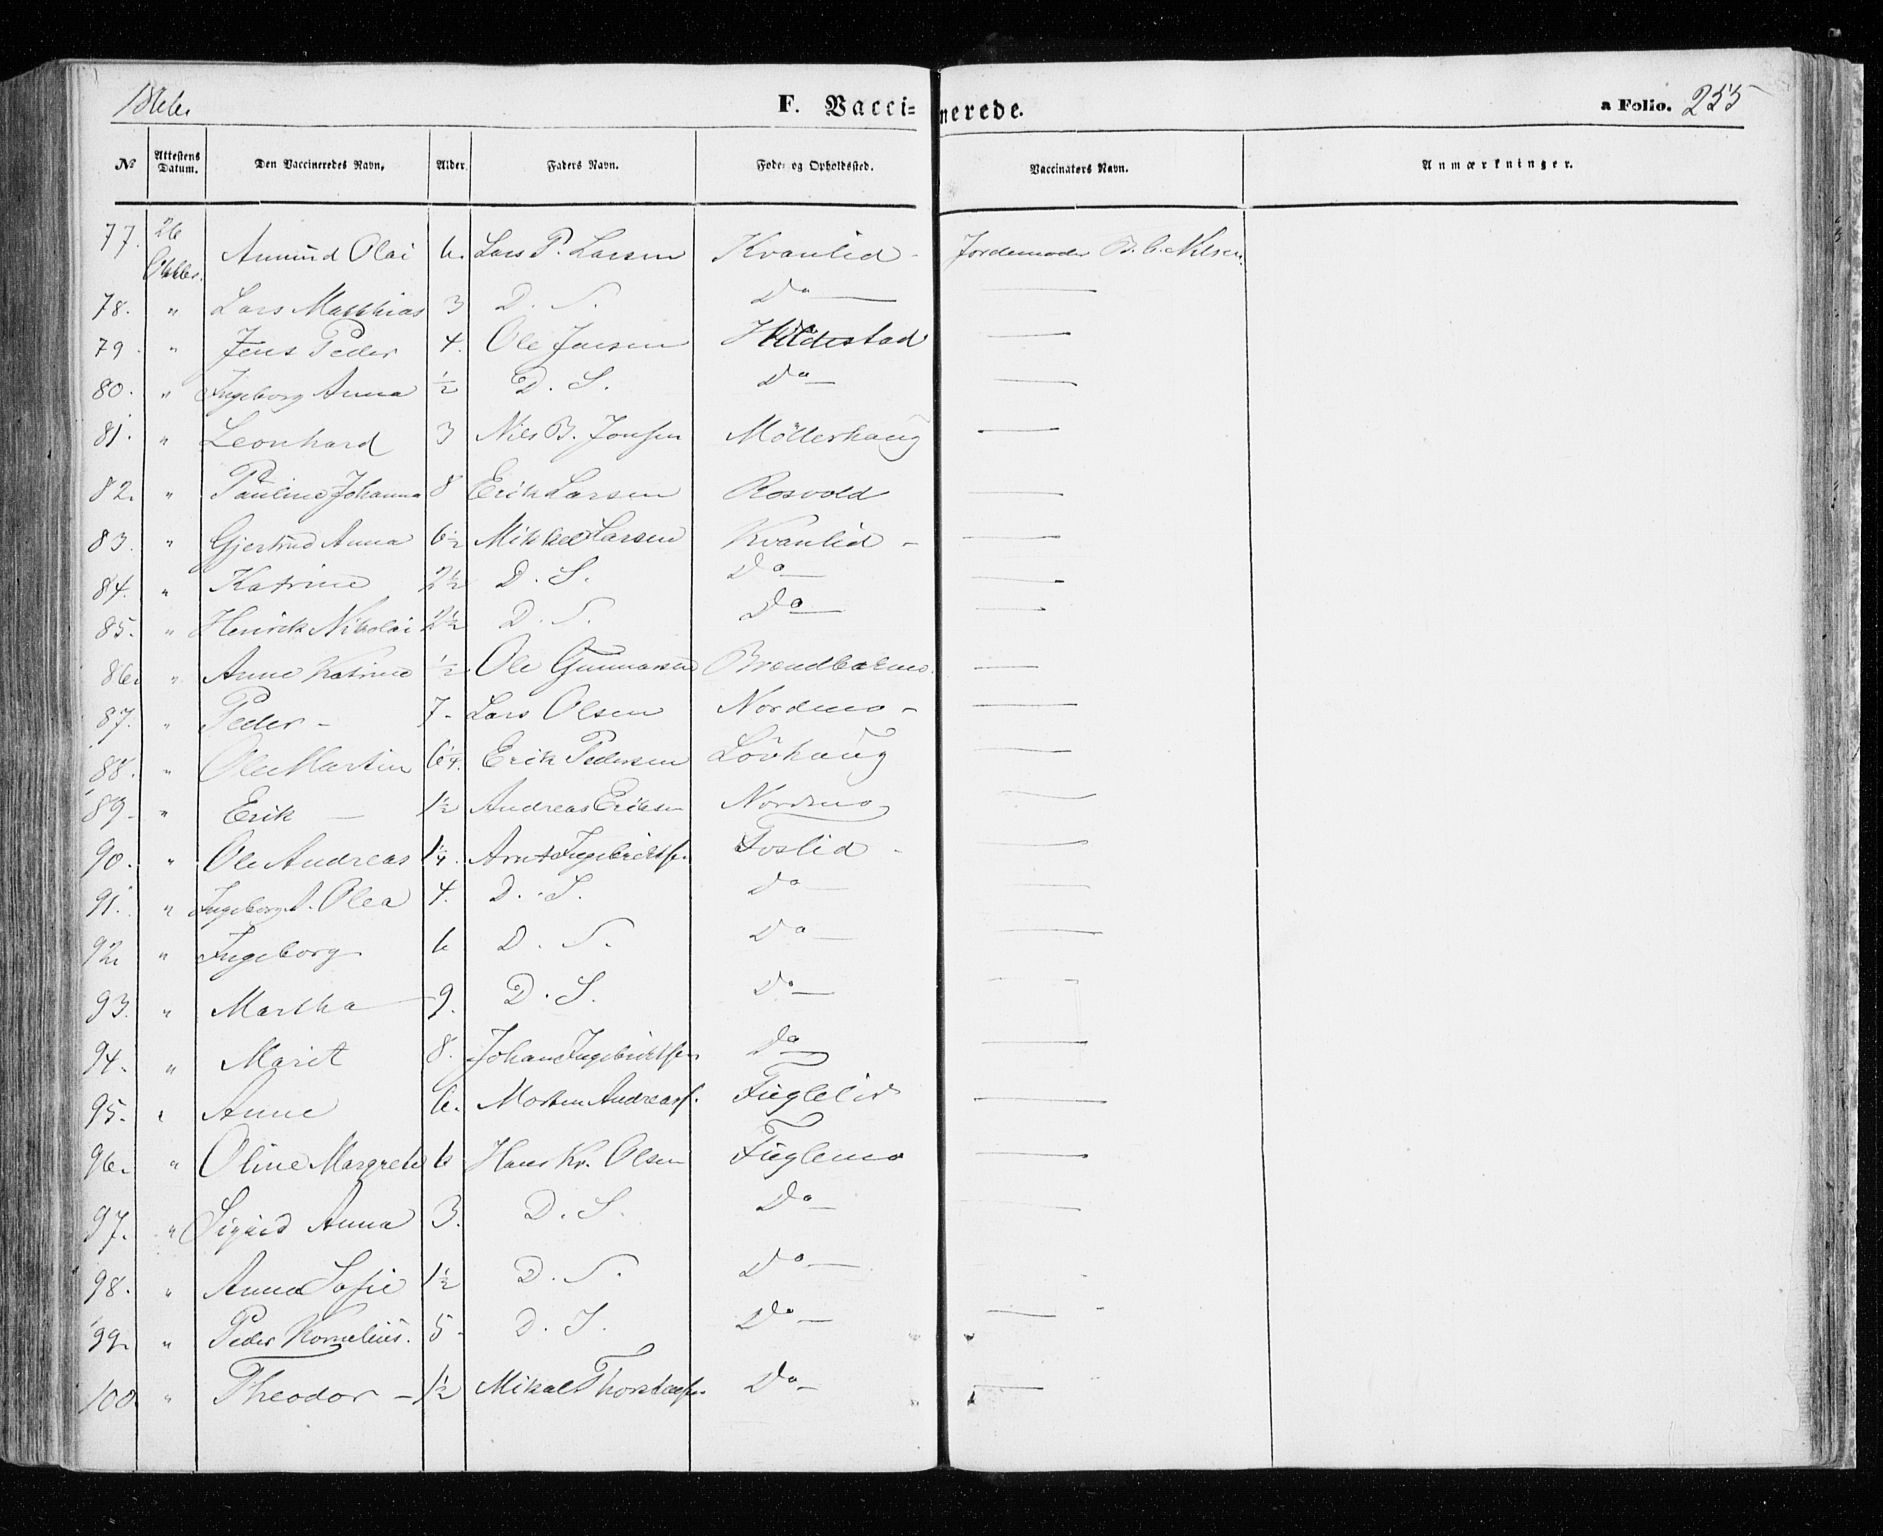 1866. F. Vaccinerede. a Folio. 255
No Attestens Datum. Den Vaccineredes Navn. Alder. Faders Navn. Føde- og Opholdssted. Vaccinatørs Navn. Anmærkninger.
77. 26 Oktbr. Amund Olai 6. Lars P. Larsen Kvanlid - Jordemoder B. C. Nilsen.
78. " Lars Matthias 3 D. S. Do —
79. " Jens Peder 4. Ole Jensen Hildestad —
80. " Ingeborg Anna ½ D. S. Do —
81. " Leonhard 3 Nils B. Jonsen Möllerhaug —
82. " Pauline Johanna 8 Erik Larsen Rosvold —
83. " Gjertrud Anna 6½ Mikkel Larsen Kvanlid - —
84. " Katrine 2½ D. S. Do —
85. " Henrik Nikolai 2½ D. S. Do —
86. " Anne Katrine ½ Ole Gunnarsen —
87. " Peder - 7. Lars Olsen Nordmo - —
88. " Ole Martin 6¼. Erik Pedersen Lövhaug —
89. " Erik — 1½ Andreas Eriksen Nordmo —
90. " Ole Andreas 1¼. Arnt Ingebrichtsen Foslid - —
91. " Ingeborg A. Olea 4. D. S. Do —
92. " Ingeborg 6 D. S. Do —
93. " Martha 9. D. S. Do —
94. " Marit 8. Johan Ingebrichtsen Do —
95. " Anne 6. Morten Andreass. Fuglelid —
96. " Oline Margrete 6 Hans Kr. Olsen Fuglemo —
97. " Sigrid Anna 3. D. S. Do —
98. " Anna Sofie 1½ D. S. Do —
99. " Peder Kornelius. 5. D. S. Do —
100. " Theodor — 1½ Mikal Thorstensen Do —